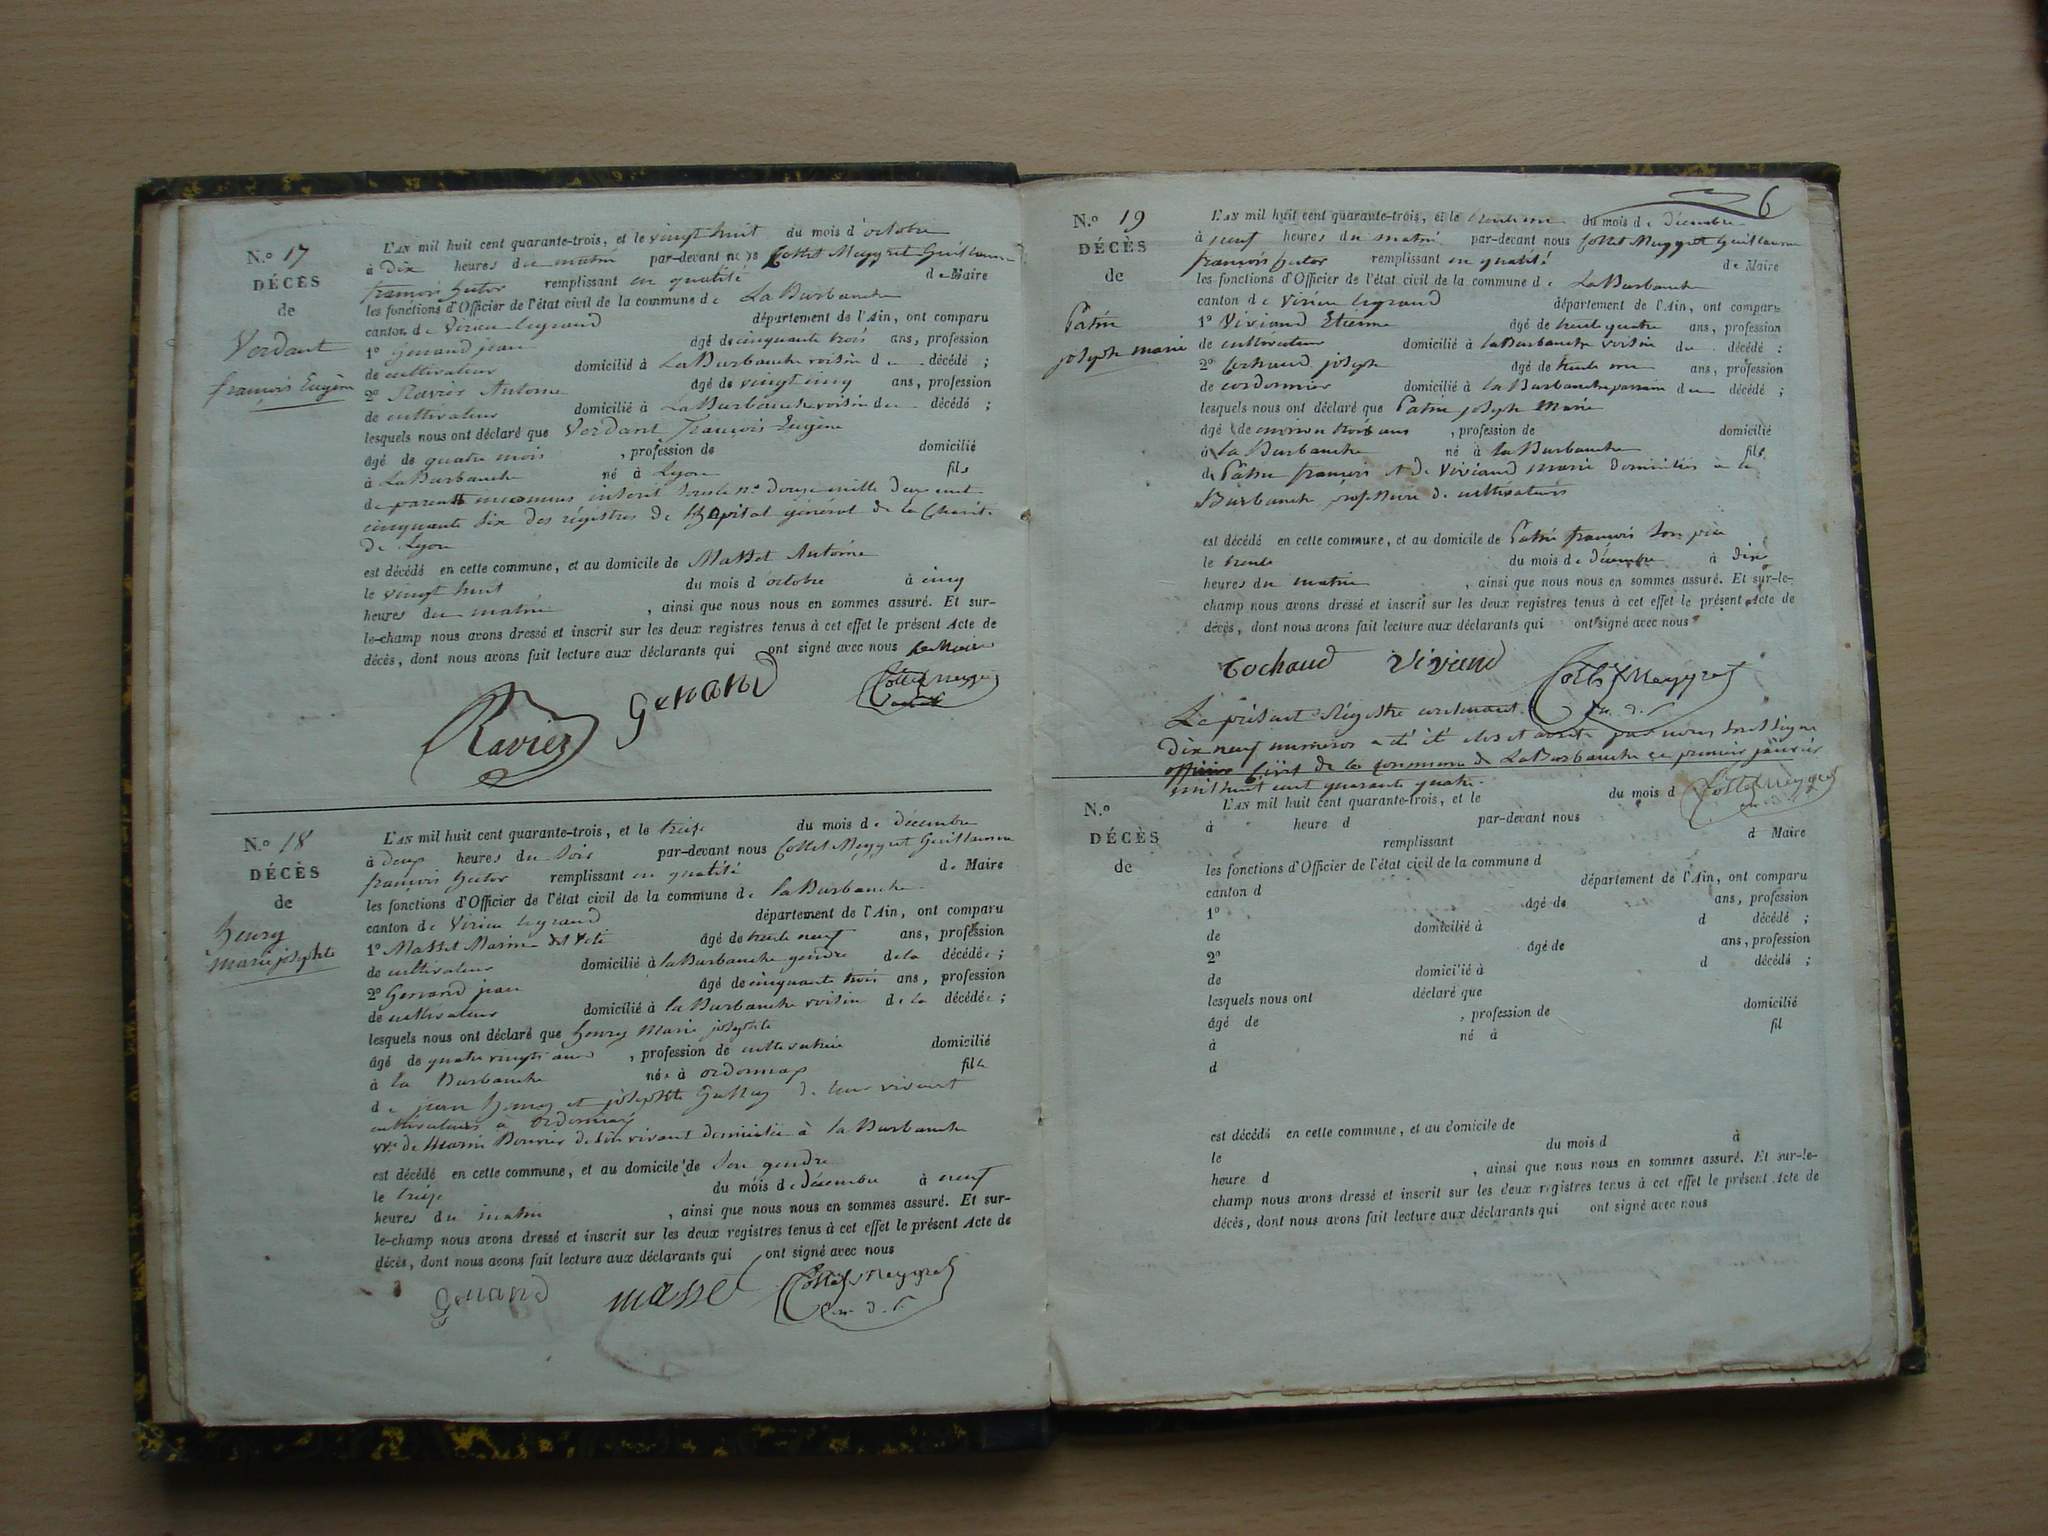 N.º 17
DÉCÈS
de
Verdant
françois Eugène
L'AN mil huit cent quarante-trois, et le vingt huit du mois d'octobre
à Dix heures du matin par-devant nous Collet Meygret Guillaume
françois hector remplissant en qualité de Maire
les fonctions d'Officier de l'état civil de la commune de La Burbanche
canton de Virieu legrand département de l'Ain, ont comparu
1º Genand jean âgé de cinquante trois ans, profession
de cultivateur domicilié à La Burbanche voisin du décédé ;
2º Ravier Antoine âgé de vingt cinq ans, profession
de cultivateur domicilié à La Burbanche voisin du décédé ;
lesquels nous ont déclaré que Verdant françois Eugène
âgé de quatre mois , profession de domicilié
à La Burbanche né à Lyon fils
de parents inconnus inscrit sous le nº douze mille deux cent
cinquante six des régistres de l'hopital général de la Charité
de Lyon
est décédé en cette commune, et au domicile de Masset Antoine
le vingt huit du mois d'octobre à cinq
heures du matin , ainsi que nous nous en sommes assuré. Et sur-
le-champ nous avons dressé et inscrit sur les deux registres tenus à cet effet le présent Acte de
décès, dont nous avons fait lecture aux déclarants qui ont signé avec nous le Maire
Ravier Genand Collet Meygret
N.º 18
DÉCÈS
de
henry
marie josephte
L'AN mil huit cent quarante-trois, et le treize du mois de decembre
à Deux heures du soir par-devant nous Collet Meygret Guillaume
françois hector remplissant en qualité de Maire
les fonctions d'Officier de l'état civil de la commune de la Burbanche
canton de Virieu legrand département de l'Ain, ont comparu
1º Masset Marin âgé de trente neuf ans, profession
de cultivateur domicilié à la Burbanche gendre de la décédée ;
2º Genand jean âgé de cinquante trois ans, profession
de cultivateur domicilié à la Burbanche voisin de la décédée ;
lesquels nous ont déclaré que henry Marie josephte
âgé de quatre vingts ans , profession de cultivatrice domicilié
à la Burbanche née à ordonnaz fille
de jean henry et josephte de leur vivant
cultivateurs à Ordonnaz
vve de Marin Bouvier de son vivant domicilié à la Burbanche
est décédé en cette commune, et au domicile de son gendre
le treize du mois de décembre à neuf
heures du matin , ainsi que nous nous en sommes assuré. Et sur-
le-champ nous avons dressé et inscrit sur les deux registres tenus à cet effet le présent Acte de
décès, dont nous avons fait lecture aux déclarants qui ont signé avec nous
Genand masset Collet Meygret
6
N.º 19
DÉCÈS
de
Patin
joseph marie
L'AN mil huit cent quarante-trois, et le trente un du mois de décembre
à neuf heures du matin par-devant nous Collet Meygret Guillaume
françois hector remplissant en qualité de Maire
les fonctions d'Officier de l'état civil de la commune de La Burbanche
canton de Virieu legrand département de l'Ain, ont comparu
1º Viviand Etienne âgé de trente quatre ans, profession
de cultivateur domicilié à la Burbanche voisin du décédé ;
2º Cochaud joseph âgé de trente un ans, profession
de cordonnier domicilié à la Burbanche parrain du décédé ;
lesquels nous ont déclaré que Patin joseph Marie
âgé de environ trois ans , profession de domicilié
à la Burbanche né à la Burbanche fils
de Patin françois et de Viviand marie domiciliés à la
Burbanche profession de cultivateurs
est décédé en cette commune, et au domicile de Patin françois son père
le trente du mois de décembre à dix
heures du matin , ainsi que nous nous en sommes assuré. Et sur-le-
champ nous avons dressé et inscrit sur les deux registres tenus à cet effet le présent Acte de
décès, dont nous avons fait lecture aux déclarants qui ont signé avec nous
Cochaud Viviand Collet Meygret
Le présent Régistre contenant
Dix neuf numéros a été clos et arrêté par nous soussigné
officier Civil de la commune de La Burbanche ce premier janvier
mil huit cent quarante quatre.
Collet Meygret
N.º
DÉCÈS
de
L'AN mil huit cent quarante-trois, et le du mois d
à heure d par-devant nous
remplissant d Maire
les fonctions d'Officier de l'état civil de la commune d
canton d département de l'Ain, ont comparu
1º âgé de ans, profession
de domicilié à d décédé ;
2º âgé de ans, profession
de domicilié à d décédé ;
lesquels nous ont déclaré que
âgé de , profession de domicilié
à né à fil
d
est décédé en cette commune, et au domicile de
le du mois d à
heure d , ainsi que nous nous en sommes assuré. Et sur-le-
champ nous avons dressé et inscrit sur les deux registres tenus à cet effet le présent Acte de
décès, dont nous avons fait lecture aux déclarants qui ont signé avec nous